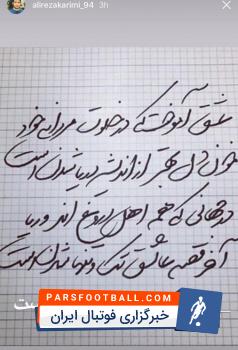 alirezakarimi_94 3h
عشق آموخت که در خلوت مردانه خود
خون دل بهتر از اندیشه دریا شدن است
در جهانی که همه اهل دروغ اند و ریا
آخر قصه عاشق تک و تنها شدن است
ست
PARSFOOTBALL.COM
خبرگزاری فوتبال ایران